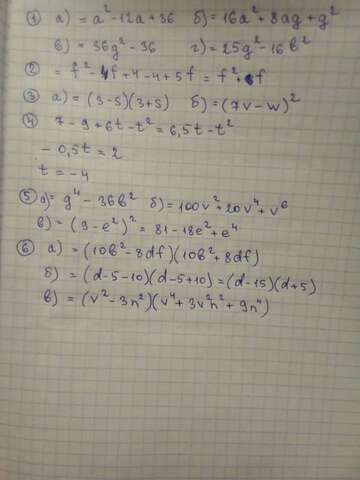 ① а) = a² -12a +36 б) = 16a² + 8ag + g²
в) = 36g² - 36 г) = 25g² - 16b²
② = f² - 4f + 4 - 4 + 5f = f² + f
③ а) = (3-5)(3+5) б) = (7v - w)²
④ 7 - 9 + 6t - t² = 6,5t - t²
- 0,5t = 2
t = -4
⑤ а) = g⁴ - 36b² б) = 100v² + 20v⁴ + v⁶
в) = (9 - e²)² = 81 - 18e² + e⁴
⑥ а) = (10b² - 8df)(10b² + 8df)
б) = (d-5-10)(d-5+10) = (d-15)(d+5)
в) = (v² - 3n²)(v⁴ + 3v²n² + 9n⁴)